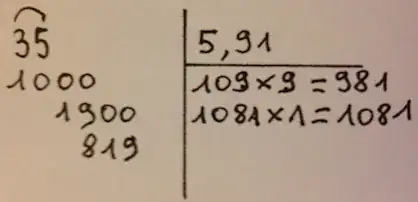 35 5,91
1000 109×9=981
1900 1081×1=1081
819